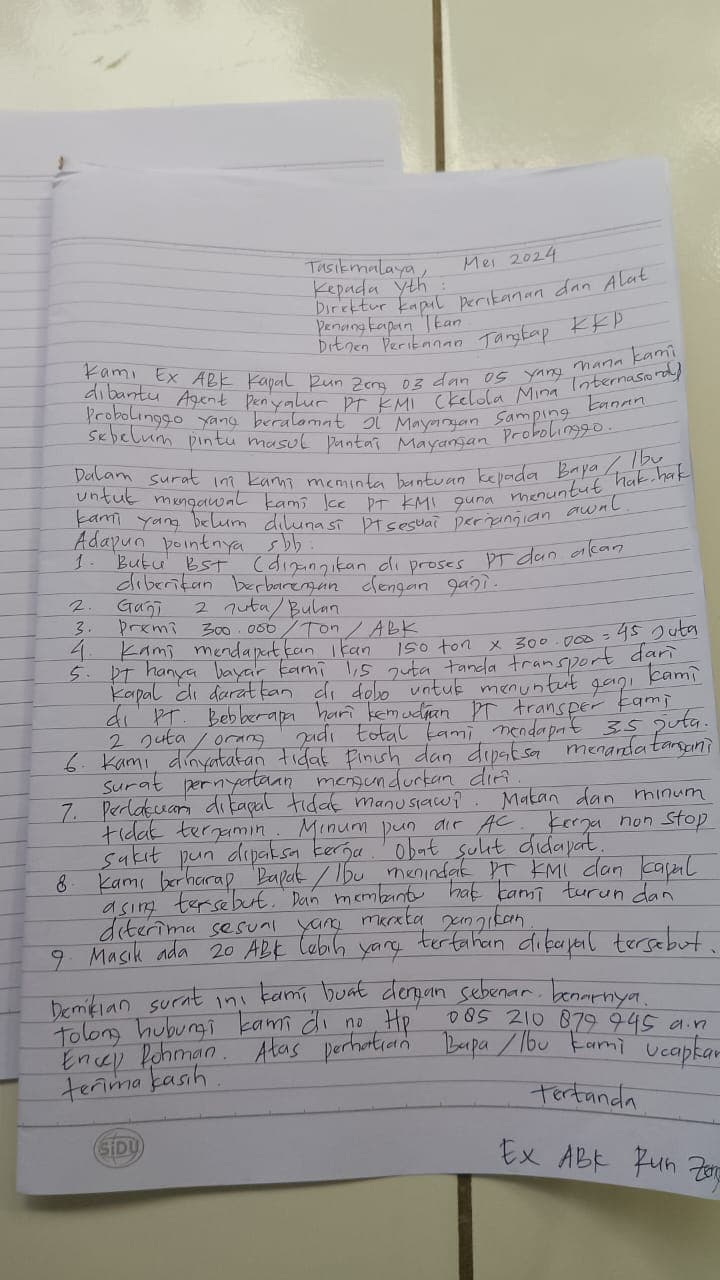 Tasikmalaya, Mei 2024
Kepada Yth :
Direktur Kapal Perikanan dan Alat
Penangkapan Ikan
Ditjen Perikanan Tangkap KKP
Kami Ex ABK Kapal Run Zeng 03 dan 05 yang mana kami
dibantu Agent Penyalur PT KMI (Kelola Mina Internasional)
Probolinggo yang beralamat Jl Mayangan Samping kanan
sebelum pintu masuk pantai Mayangan Probolinggo.
Dalam surat ini kami meminta bantuan kepada Bapa / Ibu
untuk mengawal kami ke PT KMI guna menuntut hak-hak
kami yang belum dilunasi PT sesuai perjanjian awal.
Adapun pointnya sbb :
1. Buku BST (dijanjikan di proses PT dan akan
diberikan berbarengan dengan gaji.
2. Gaji 2 juta/Bulan
3. Premi 300.000 / Ton / ABK
4. Kami mendapatkan ikan 150 ton x 300.000 = 45 Juta
5. PT hanya bayar kami 1,5 juta tanda transport dari
kapal di daratkan di dobo untuk menuntut gaji kami
di PT. Bebberapa hari kemudian PT transper kami
2 juta / orang jadi total kami mendapat 3.5 juta.
6. Kami dinyatakan tidak finish dan dipaksa menandatangani
surat pernyataan mengundurkan diri.
7. Perlakuan dikapal tidak manusiawi. Makan dan minum
tidak terjamin. Minum pun air AC. Kerja non stop
sakit pun dipaksa kerja. Obat sulit didapat.
8. Kami berharap Bapak / Ibu menindak PT KMI dan kapal
asing tersebut. Dan membantu hak kami turun dan
diterima sesuai yang mereka janjikan
9. Masik ada 20 ABK lebih yang tertahan dikapal tersebut.
Demikian surat ini kami buat dengan sebenar-benarnya.
tolong hubungi kami di no Hp 085 210 879 945 a.n
Encep Rohman. Atas perhatian Bapa / Ibu kami ucapkan
terima kasih.
tertanda
Ex ABK Run Zeng
SiDU